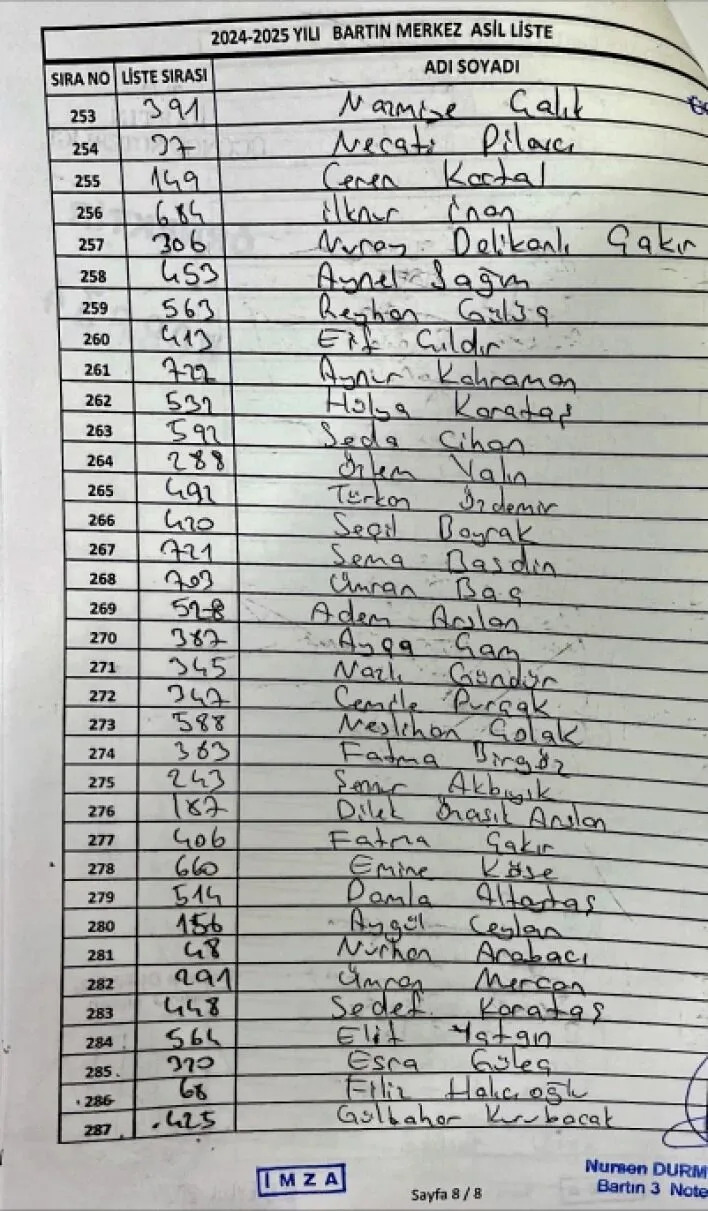 2024-2025 YILI BARTIN MERKEZ ASİL LİSTE
SIRA NO LİSTE SIRASI ADI SOYADI
253 391 Nazmiye Çalık
254 97 Necati Pilavcı
255 149 Ceren Kartal
256 684 ilknur inan
257 306 Nuray Delikanlı Çakır
258 453 Aynel Sağım
259 563 Reyhan Gülüş
260 413 Elif Çıldır
261 722 Aynur Kahraman
262 532 Hülya Karataş
263 592 Seda Cihan
264 288 Özlem Yalın
265 492 Türkan Özdemir
266 420 Seçil Bayrak
267 721 Sema Basdin
268 703 Ümran Baş
269 528 Adem Arslan
270 387 Ayça Çam
271 345 Nazlı Gündür
272 347 Cemile Purçak
273 588 Neslihan Çolak
274 363 Fatma Birgöz
275 243 Akbıyık
276 187 Dilek Arslan
277 406 Fatma Çakır
278 660 Emine Köse
279 514 Damla Altaştaş
280 156 Aygül Ceylan
281 48 Nurhan Arabacı
282 291 Ümran Mercan
283 448 Sedef Karataş
284 564 Elif Yatgın
285 370 Esra Güleç
286 68 Filiz Halıcıoğlu
287 425 Gülbahar Kurubacak
İMZA
Sayfa 8 / 8
Nursen DURM
Bartın 3 Note